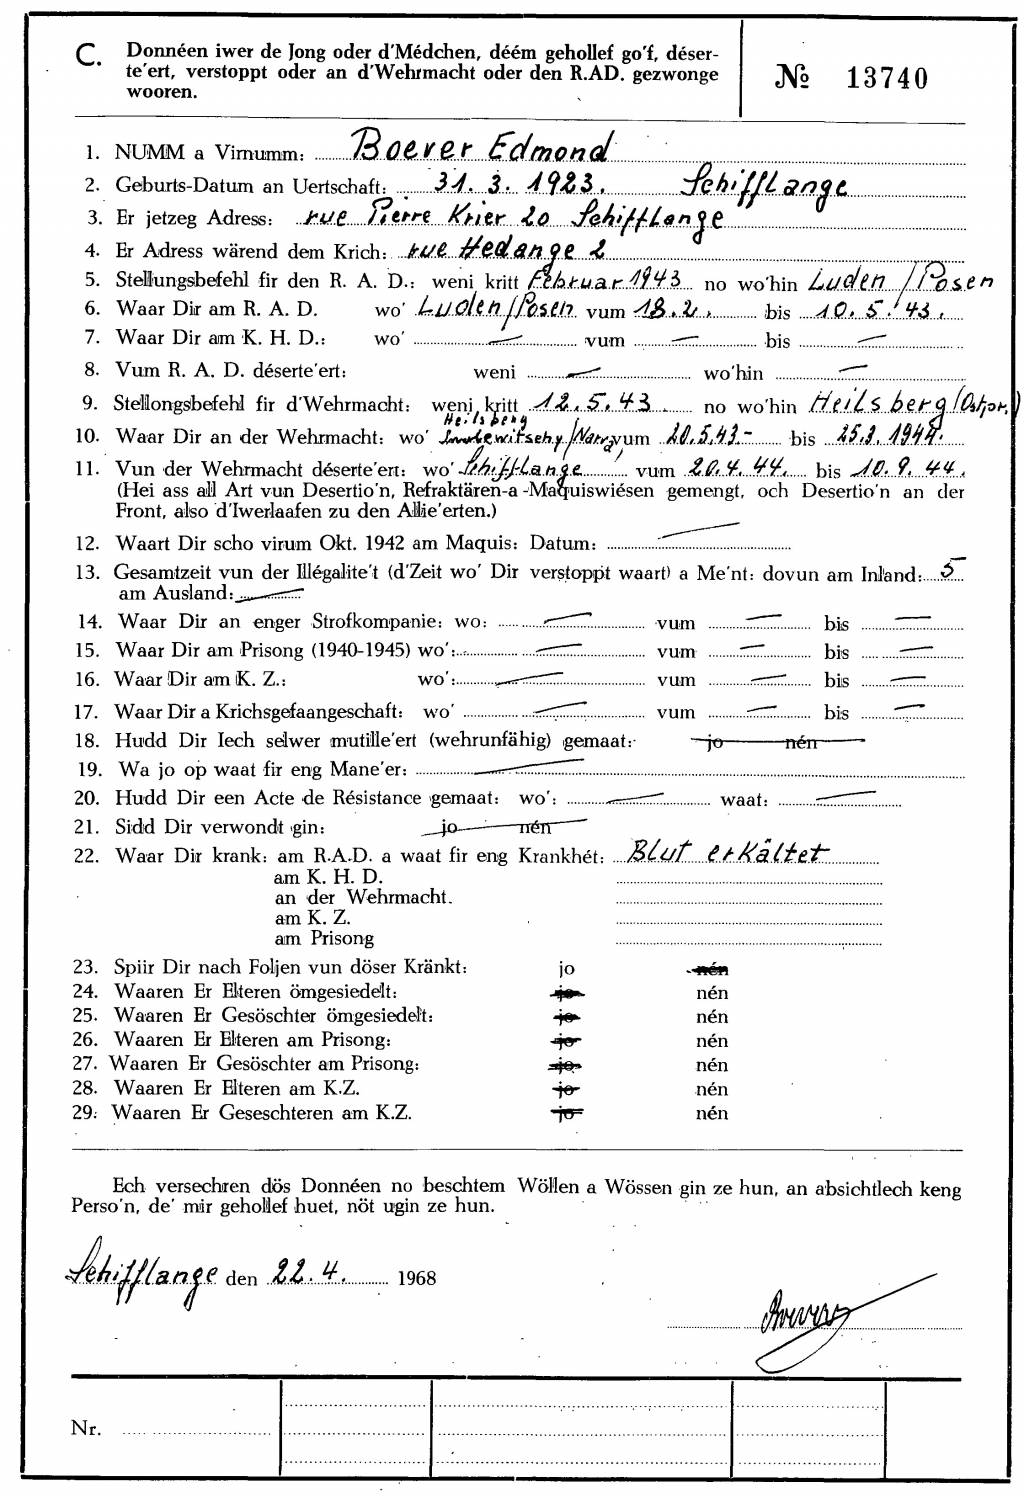 C. Donnéen iwer de Jong oder d'Médchen, déém gehollef go'f, déser-
te'ert, verstoppt oder an d'Wehrmacht oder den R.AD. gezwonge
wooren.
№ 13740
1. NUMM a Virnumm: Boever Edmond
2. Geburts-Datum an Uertschaft: 31. 3. 1923. Schifflange
3. Er jetzeg Adress: rue Pierre Krier 20 Schifflange
4. Er Adress wärend dem Krich: rue Hedange 2
5. Stellungsbefehl fir den R. A. D.: weni kritt Februar 1943 no wo'hin Luden/Posen
6. Waar Dir am R. A. D. wo' Luden/Posen vum 18.2. bis 10. 5. 43.
7. Waar Dir am K. H. D.: wo' — vum — bis —
8. Vum R. A. D. déserte'ert: weni — wo'hin —
9. Stellongsbefehl fir d'Wehrmacht: weni kritt 12.5.43. no wo'hin Heilsberg (Ostpr.)
Heilsberg
10. Waar Dir an der Wehrmacht: wo' /Narva, vum 20.5.43.- bis 25.3.1944.
11. Vun der Wehrmacht déserte'ert: wo' Schifflange vum 20.4.44. bis 10.9.44.
(Hei ass all Art vun Desertio'n, Refraktären-a-Maquiswiésen gemengt, och Desertio'n an der
Front, also d'Iwerlaafen zu den Allie'erten.)
12. Waart Dir scho virum Okt. 1942 am Maquis: Datum: —
13. Gesamtzeit vun der Illégalite't (d'Zeit wo' Dir verstoppt waart) a Me'nt: dovun am Inland: 5
am Ausland: —
14. Waar Dir an enger Strofkompanie: wo: — vum — bis —
15. Waar Dir am Prison (1940-1945) wo': — vum — bis —
16. Waar Dir am K. Z.: wo': — vum — bis —
17. Waar Dir a Krichsgefaangeschaft: wo' — vum — bis —
18. Hudd Dir Iech selwer mutille'ert (wehrunfähig) gemaat: jo nén
19. Wa jo op waat fir eng Mane'er: —
20. Hudd Dir een Acte de Résistance gemaat: wo': — waat: —
21. Sidd Dir verwondt gin: jo nén
22. Waar Dir krank: am R.A.D. a waat fir eng Krankhét: Blut erkältet
am K. H. D.
an der Wehrmacht.
am K. Z.
am Prisong
23. Spiir Dir nach Foljen vun döser Kränkt: jo nén
24. Waaren Er Elteren ömgesiedelt: jo nén
25. Waaren Er Gesöschter ömgesiedelt: jo nén
26. Waaren Er Elteren am Prisong: jo nén
27. Waaren Er Gesöschter am Prisong: jo nén
28. Waaren Er Elteren am K.Z. jo nén
29. Waaren Er Geseschteren am K.Z. jo nén
Ech versechren dös Donnéen no beschtem Wöllen a Wössen gin ze hun, an absichtlech keng
Perso'n, de' mir gehollef huet, nöt ugin ze hun.
Schifflange den 22. 4. 1968
Nr.